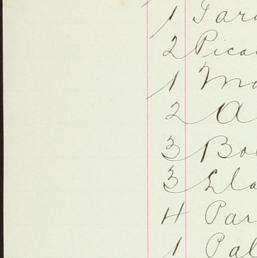 1 Tar
2 Pica
1 Mo
2 A
3 Bo
3 Ela
4 Par
1 Pal